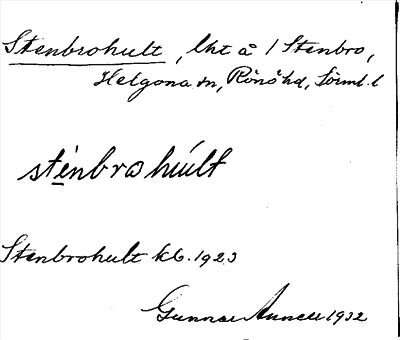 Stenbrohult, lht å 1 Stenbro,
Helgona sn, Rönö hd, Sörml. l
sténbrωhúlt
Stenbrohult kb. 1923
Gunnar Annell 1932